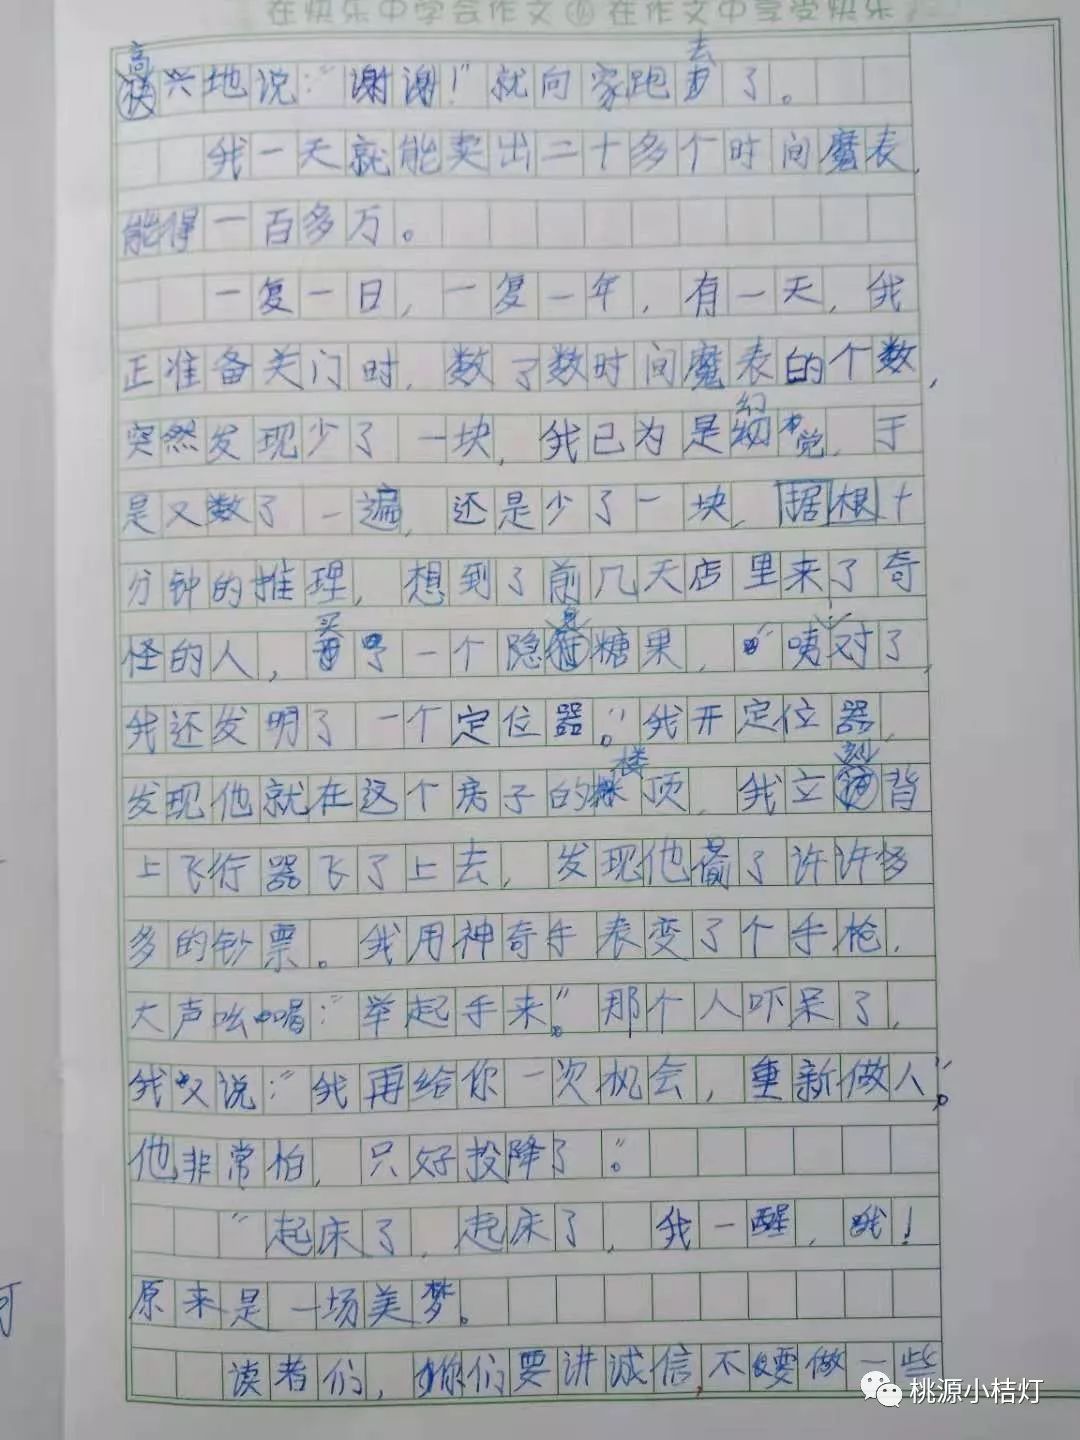 在快乐中学会作文 在作文中享受快乐
高兴地说：“谢谢！”就向家跑去了。
我一天就能卖出二十多个时间魔表，
能得一百多万。
一复一日，一复一年，有一天，我
正准备关门时，数了数时间魔表的个数，
突然发现少了一块，我已为是幻觉，于
是又数了一遍，还是少了一块，据根十
分钟的推理，想到了前几天店里来了奇
怪的人，买了一个隐身糖果，“咦！对了，
我还发明了一个定位器。”我开定位器，
发现他就在这个房子的楼顶，我立刻背
上飞行器飞了上去，发现他偷了许许多
多的钞票。我用神奇手表变了个手枪，
大声吆喝：“举起手来。”那个人吓呆了，
我又说：“我再给你一次机会，重新做人。”
他非常怕，只好投降了”。
“起床了，起床了，我一醒，哦！
原来是一场美梦。
读者们，你们要讲诚信，不要做一些
桃源小桔灯